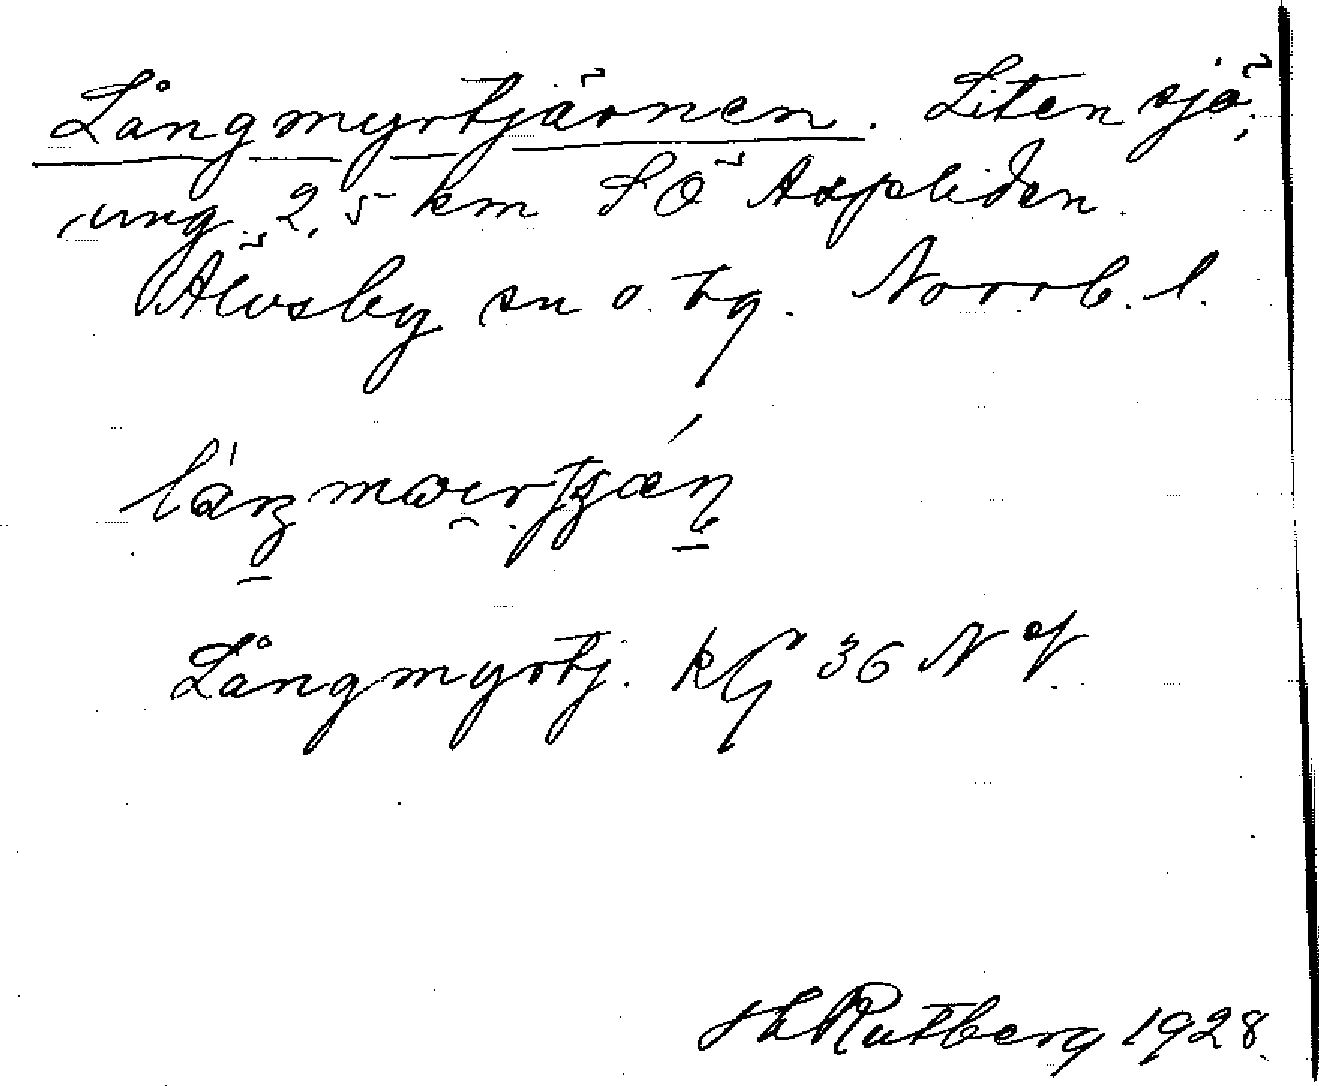 Långmyrtjärnen. Liten sjö,
ung. 2,5 km SÖ Aspliden
Älvsby sn o. tg. Norrb. l.
Långmyrtj. kG 36 N of
H L Rutberg 1928